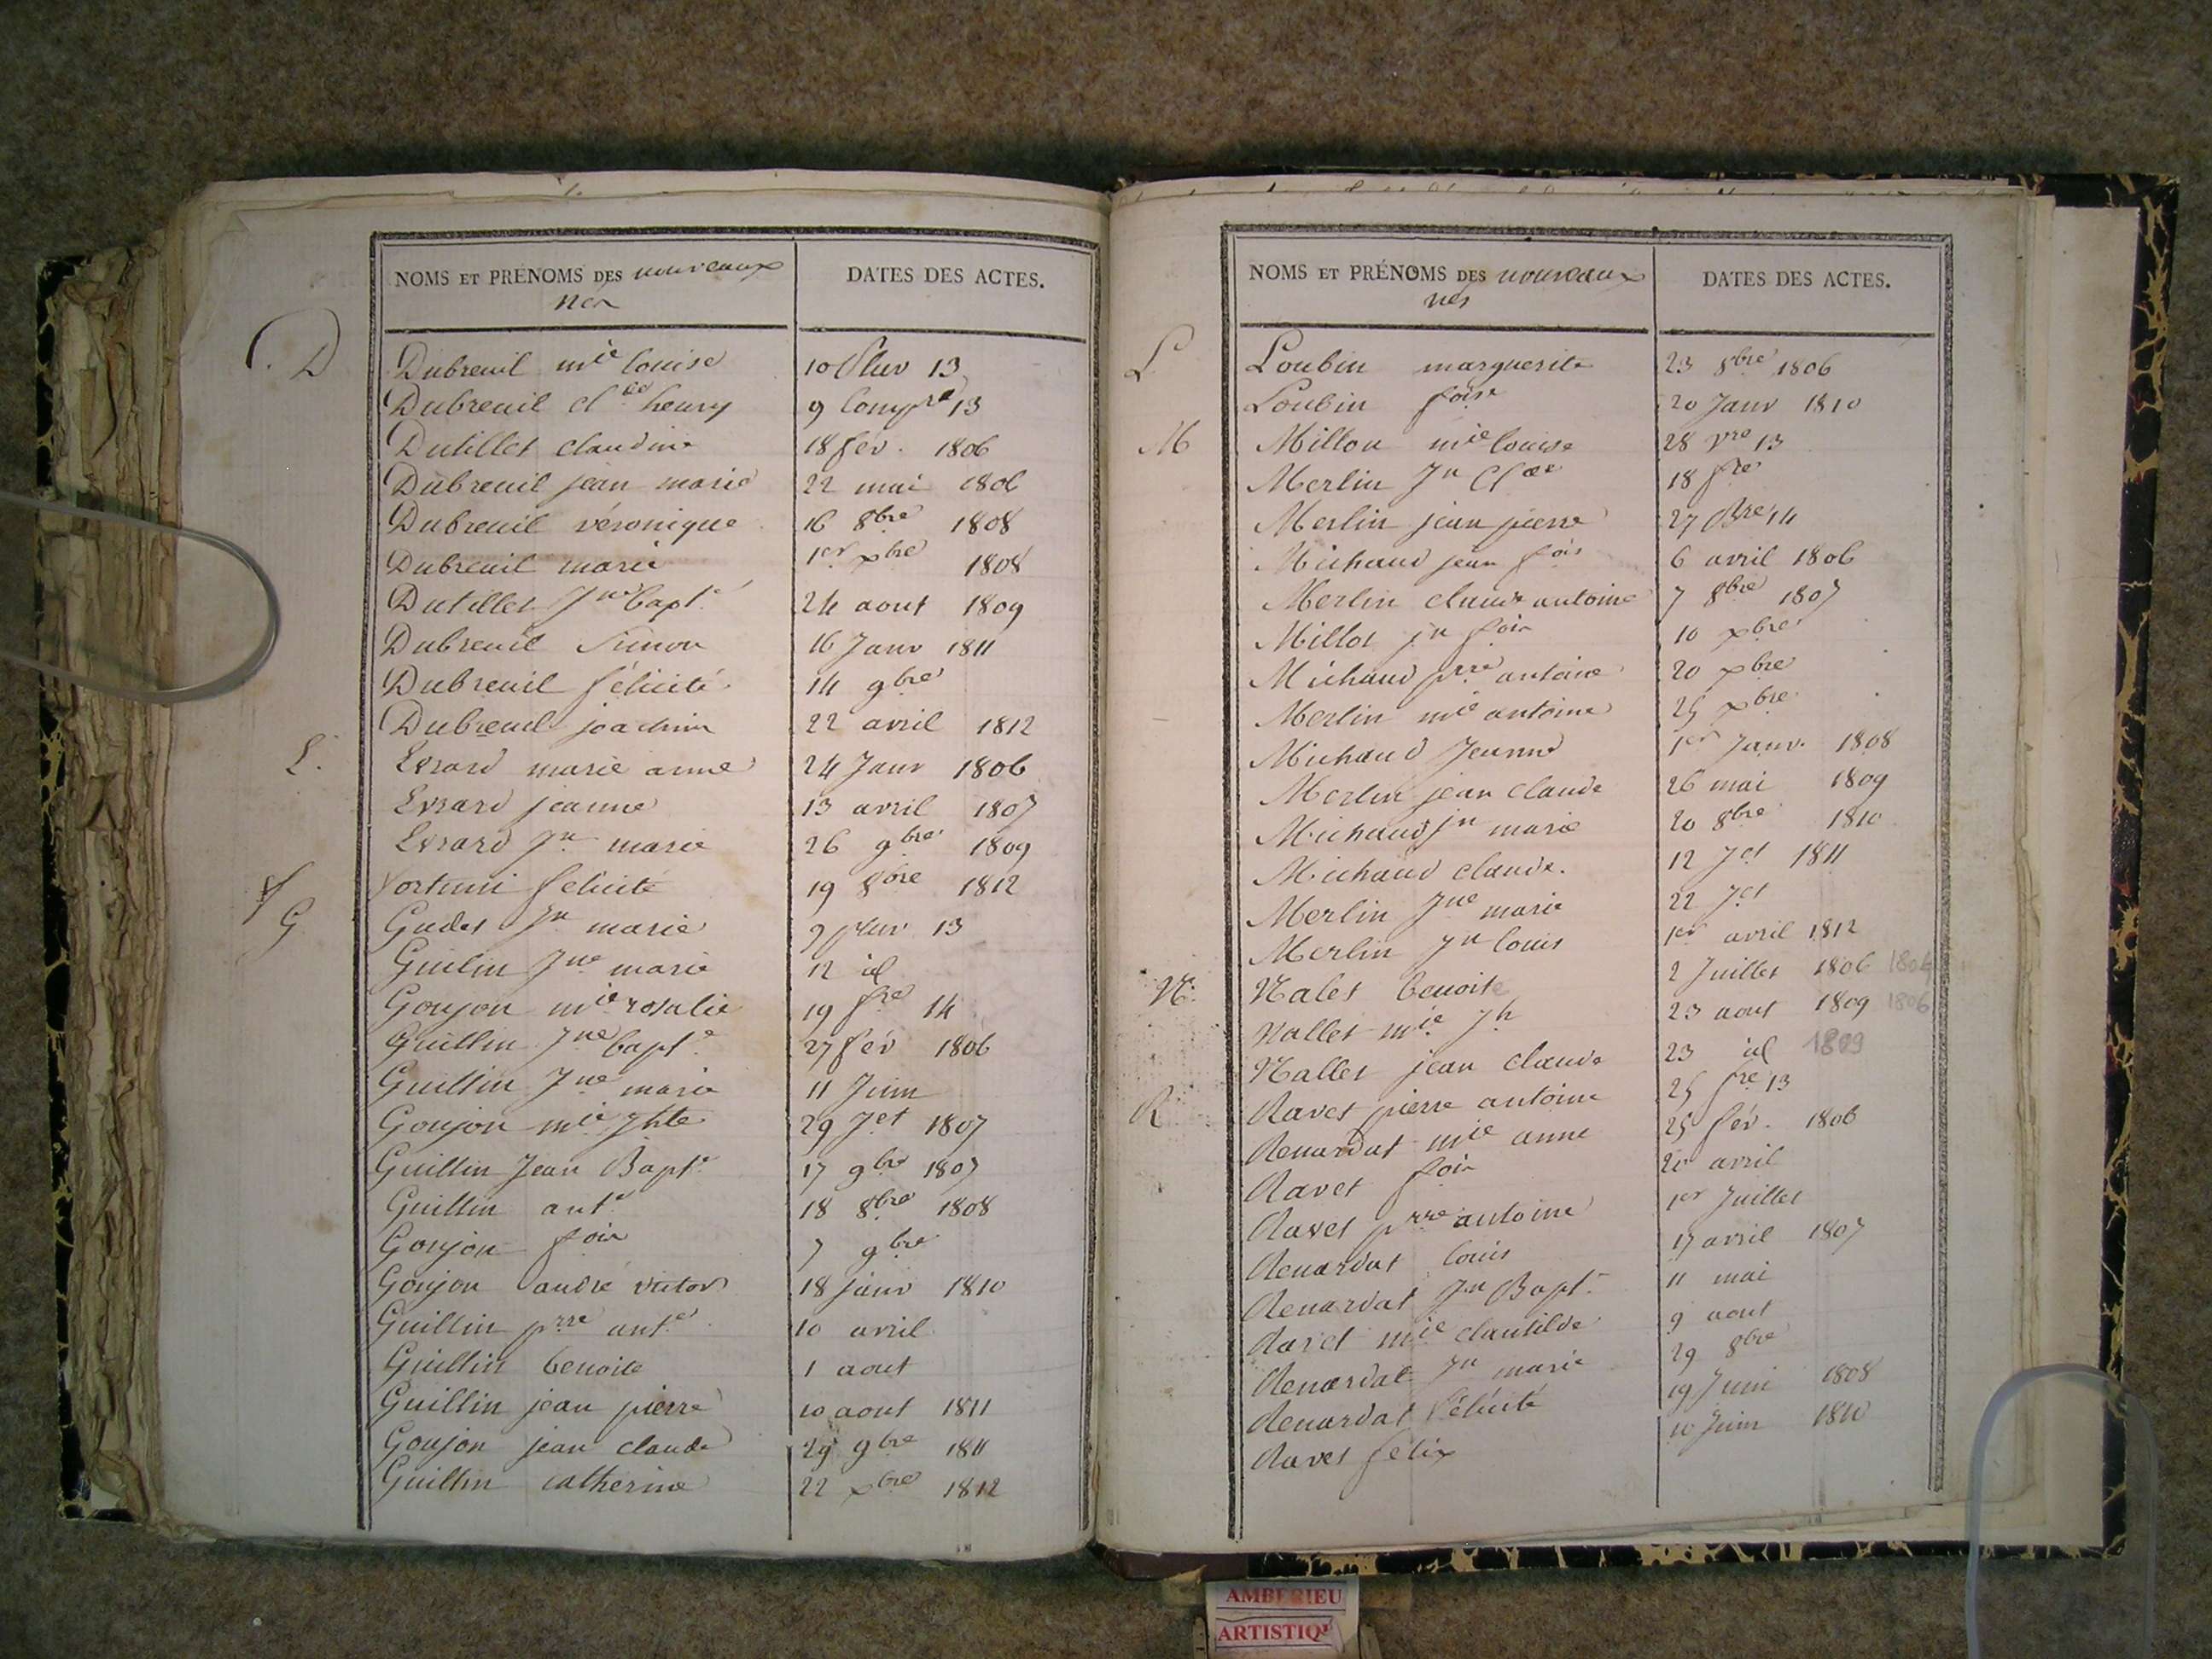 NOMS ET PRÉNOMS DES nouveaux nés
DATES DES ACTES.
D Dubreuil mie louise 10 pluv 13
Dubreuil cl henry 9 Compre 13
Dutillet claudine 18 fév. 1806
Dubreuil jean marie 22 mai 1806
Dubreuil véronique 16 8bre 1808
Dubreuil marie 1er xbre 1808
Dutillet Jn Bapte 24 aout 1809
Dubreuil Simon 16 Janv 1811
Dubreuil félicité 14 9bre
Dubreuil joachim 22 avril 1812
E. Evrard marie anne 24 Janv 1806
Evrard jeanne 13 avril 1807
Evrard Jn marie 26 9bre 1809
f fortuni félicité 19 8bre 1812
G Gudet Jn marie 9 pluv 13
Guilin Jne marie 12 id
Goujon mie rosalie 19 fre 14
Guillin Jne Bapte 27 fév 1806
Guillin Jne marie 11 Juin
Goujon mie Jhte 29 Jet 1807
Guillin Jean Bapte 17 9bre 1807
Guillin ante 18 8bre 1808
Goujon fois 7 9bre
Goujon andré victor 18 janv 1810
Guillin prre ante 10 avril
Guillin benoite 1 aout
Guillin jean pierre 10 aout 1811
Goujon jean claude 29 9bre 1811
Guillin catherine 22 xbre 1812
NOMS ET PRÉNOMS DES nouveaux nés
DATES DES ACTES.
L Loubin marguerite 23 8bre 1806
Loubin foise 20 Janv 1810
M Millon mie louise 28 vre 13
Merlin Jn Cl 18 fre
Merlin jean pierre 27 Bre 14
Michaud jean fois 6 avril 1806
Merlin claude antoine 7 8bre 1807
Millot jn fois 10 xbre
Michaud prre antoine 20 xbre
Merlin mie antoine 25 xbre
Michaud Jeanne 1er Janv. 1808
Merlin jean claude 26 mai 1809
Michaud jn marie 20 8bre 1810
Michaud claude. 12 Jet 1811
Merlin Jne marie 22 Jet
Merlin Jn louis 1er avril 1812
N. Nalet benoite 2 Juillet 1806 1804
Nallet mie Jh 23 aout 1809 1806
Nallet jean claude 23 id 1809
R Ravet pierre antoine 25 fre 13
Renardat mie anne 25 fév. 1806
Ravet fois 20 avril
Ravet prre antoine 1er Juillet
Renardat louis 17 avril 1807
Renardat Jn Bapt. 11 mai
Ravet mie clautilde 9 aout
Renardat Jn marie 29 8bre
Renardat félicité 19 Juin 1808
Ravet félix 10 Juin 1810
AMBERIEU
ARTISTIQ